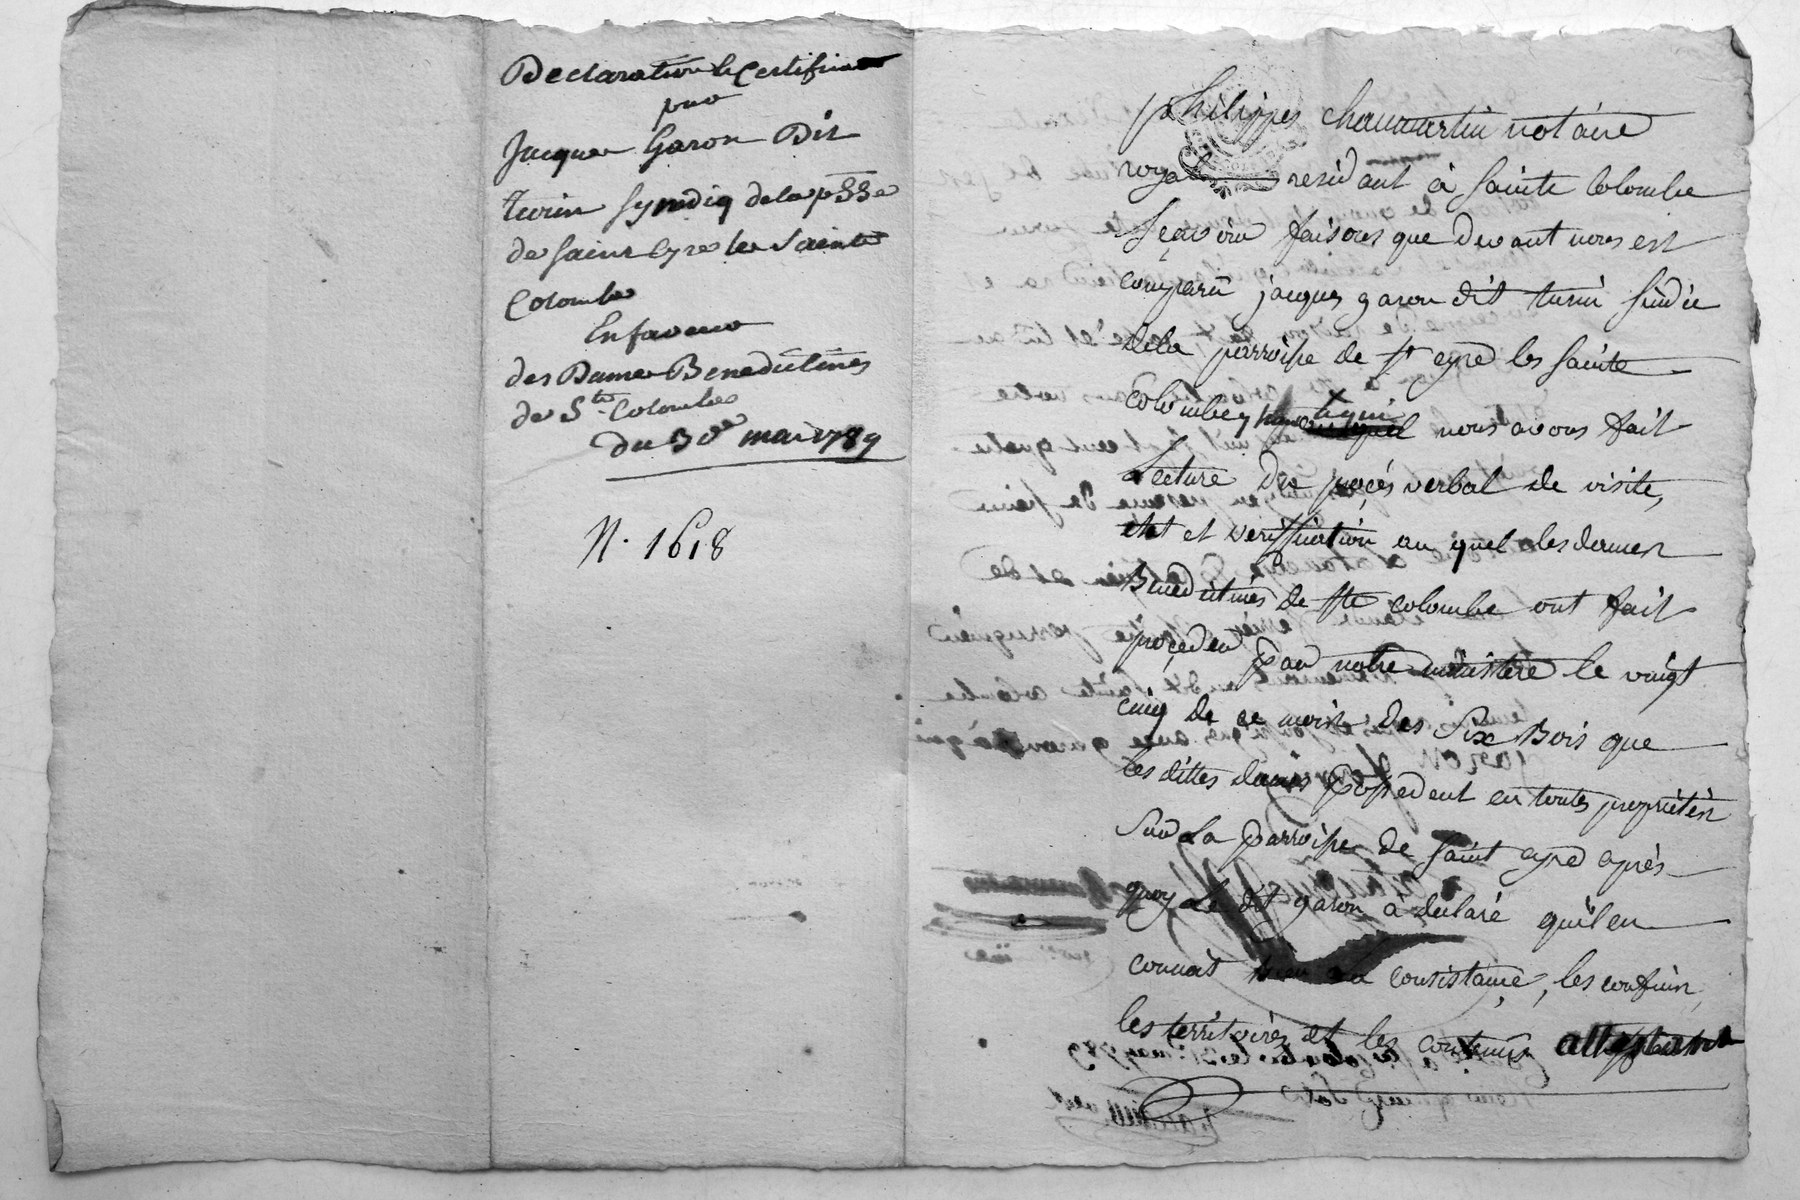 Declaration le Certifica
par
Jacque Garon Dit
Turin Syndiq de la psse
de Saint Cyre les Sainte
Colombe
En faveur
des Dames Benedictines
de Ste Colombe
du 30e mai 1789
N. 1618
philippes chaumartin notaire
royal residant à Sainte Colombe
sçavoir faisons que devant nous est
comparu jacques garon dit turin sindic
de la parroisse de st cyre les sainte
Colombe nous avons fait
Lecture du procés verbal de visite,
etat et veriffication au quel les dames
Benedictines de ste colombe ont fait
proceder par notre ministere le vingt
cinq de ce mois des six Bois que
les dittes dames possedent en toutes proprietés
sur La parroisse de saint cyre après
quoy Le dit garon à declaré quil en
connoit bien la consistance, les confins,
les territoires et les contenus attestant